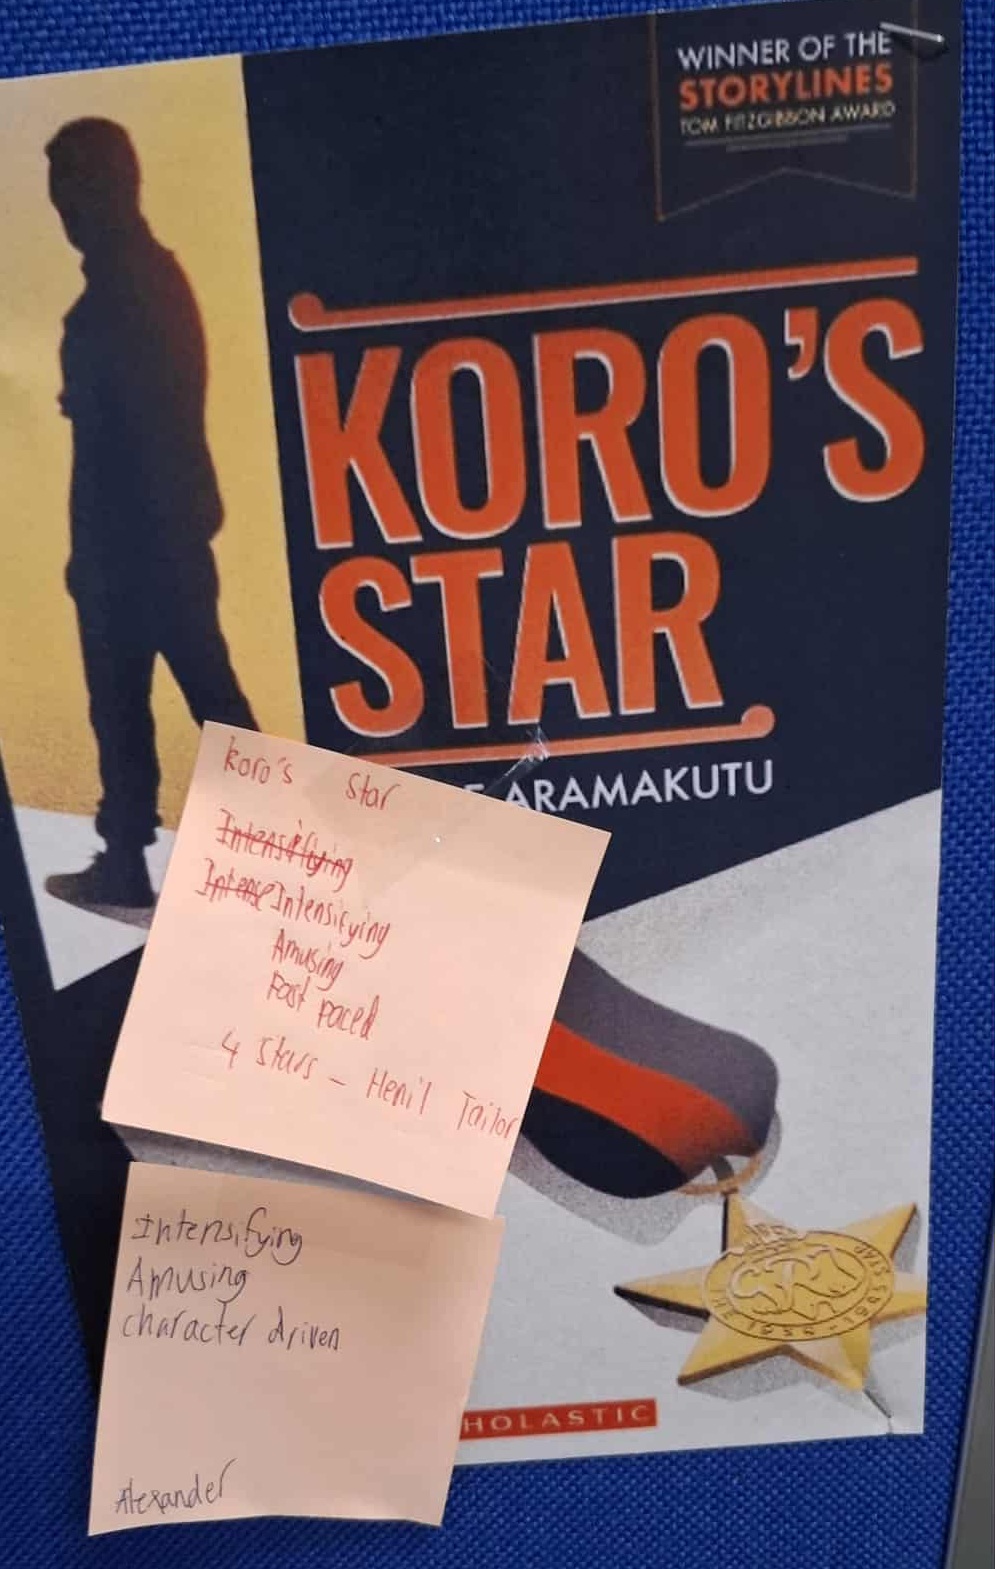 WINNER OF THE
STORYLINES
TOM FITZGIBBON AWARD
KORO'S
STAR
ARAMAKUTU
Koro's Star
Intensifying
Intense Intensifying
Amusing
Fast paced
4 Stars – Henil Tailor
Intensifying
Amusing
character driven
Alexander
HOLASTIC